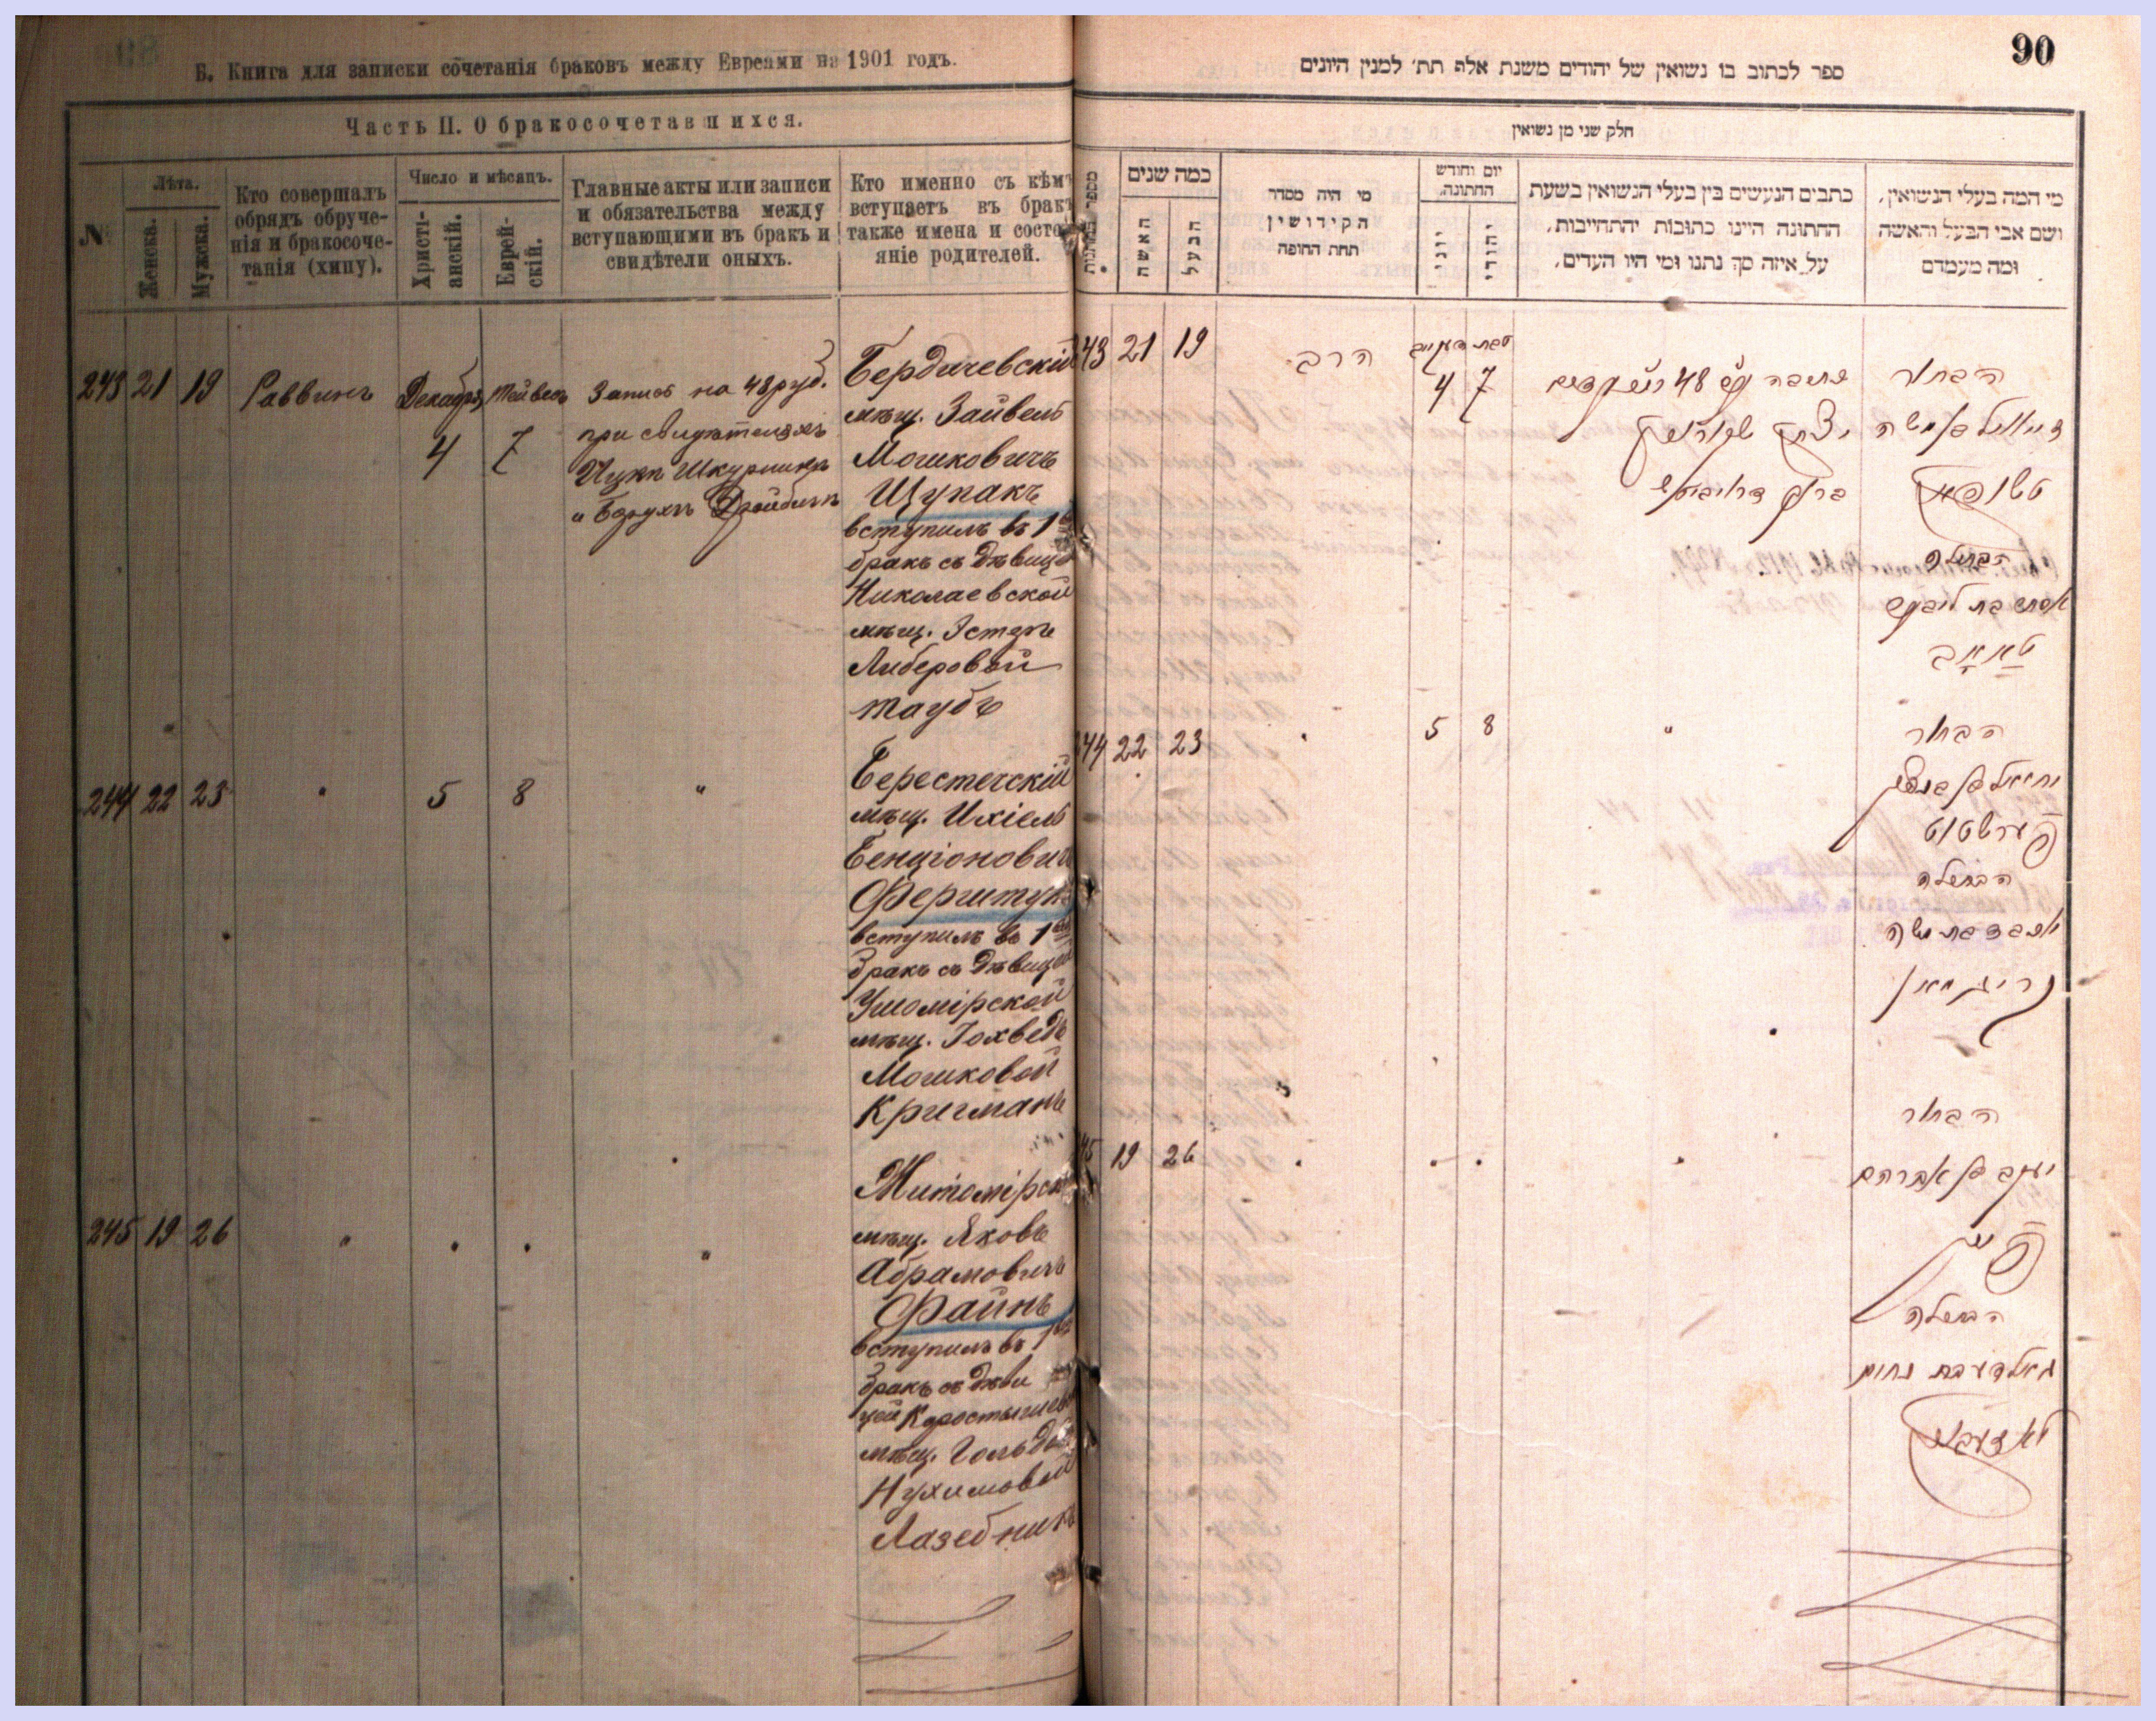 Б. Книга для записки сочетанія браковъ между Евреями на 1901 годъ.
Часть II. О бракосочетавшихся.
№
Лѣта.
Женска.
Мужска.
Кто совершалъ
обрядъ обруче-
нія и бракосоче-
танія (хипу).
Число и мѣсяцъ.
Христі-
анскій.
Еврей-
скій.
Главные акты или записи
и обязательства между
вступающими въ бракъ и
свидѣтели оныхъ.
Кто именно съ кѣмъ
вступаетъ въ бракъ
также имена и состо-
яніе родителей.
243 21 19 Раввинъ Декабря 4 7
Запись на 48 руб.
при свидѣтеляхъ
Ицкѣ
и Борухѣ
Бердичевскій
мѣщ. Зайвель
Мошковичъ
Щупакъ
вступилъ въ 1
бракъ съ дѣвицей
Николаевской
мѣщ. Эстерѣ
Либеровой
Таубъ
244 22 23 " 5 8 "
Берестечскій
мѣщ. Ихіель
Бенціоновичъ
вступилъ въ 1
бракъ съ дѣвицей
Ушомірской
мѣщ. Іохведъ
Мошковой
Кригманъ
245 19 26 " " " "
мѣщ. Яковъ
Абрамовичъ
Файнъ
вступилъ въ 1
бракъ съ дѣви
цей
мѣщ.
Нухимовой
Лазебникъ
90
ספר לכתוב בו נשואין של יהודים משנת אלף תת׳ למנין היונים
חלק שני מן נשואין
כמה שנים
האשה
הבעל
מי היה מסדר
הקידושין
תחת החופה
יום וחודש
החתונה
יוני
יהודי
כתבים הנעשים בין בעלי הנשואין בשעת
החתונה היינו כתובות והתחייבות,
על איזה סך נתנו ומי היו העדים,
מי המה בעלי הנשואין,
ושם אבי הבעל והאשה
ומה מעמדם
43 21 19 הרב 4 7
48
יצחק
ברוך
הבחור
בן משה
הבתולה
אסתר בת
טאוב
44 22 23 " 5 8 "
הבחור
יחיאל בן
פערשטוט
הבתולה
בת משה
קריגמאן
45 19 26 " " " "
הבחור
יעקב בן אברהם
פיין
הבתולה
גאלדע בת נחום
לאזעבניק